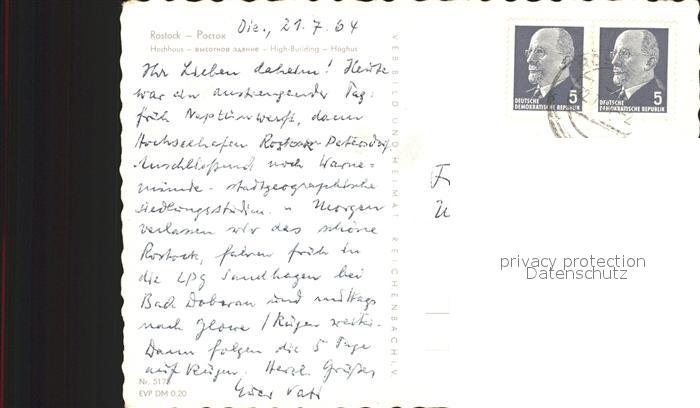 Die., 21.7.64
Rostock – Росток
Hochhaus – высотное здание – High-Building – Höghus
Ihr Lieben daheim! Heute
war ein anstrengender Tag:
früh Neptunwerft, dann
Hochseehafen Rostock Petersdorf.
Anschließend noch Warne=
münde - stadtgeographische
Siedlungsstudien. Morgen
verlassen wir das schöne
Rostock, fahren früh in
die LPG Sandhagen bei
Bad Doberan und mittags
nach Glowe / Rügen weiter.
Dann folgen die 5 Tage
auf Rügen. Herzl. Grüße
Euer Vati
Nr. 517
EVP DM 0,20
VEB BILD UND HEIMAT REICHENBACH i.V.
DEUTSCHE
DEMOKRATISCHE REPUBLIK 5
DEUTSCHE
DEMOKRATISCHE REPUBLIK 5
privacy protection
Datenschutz